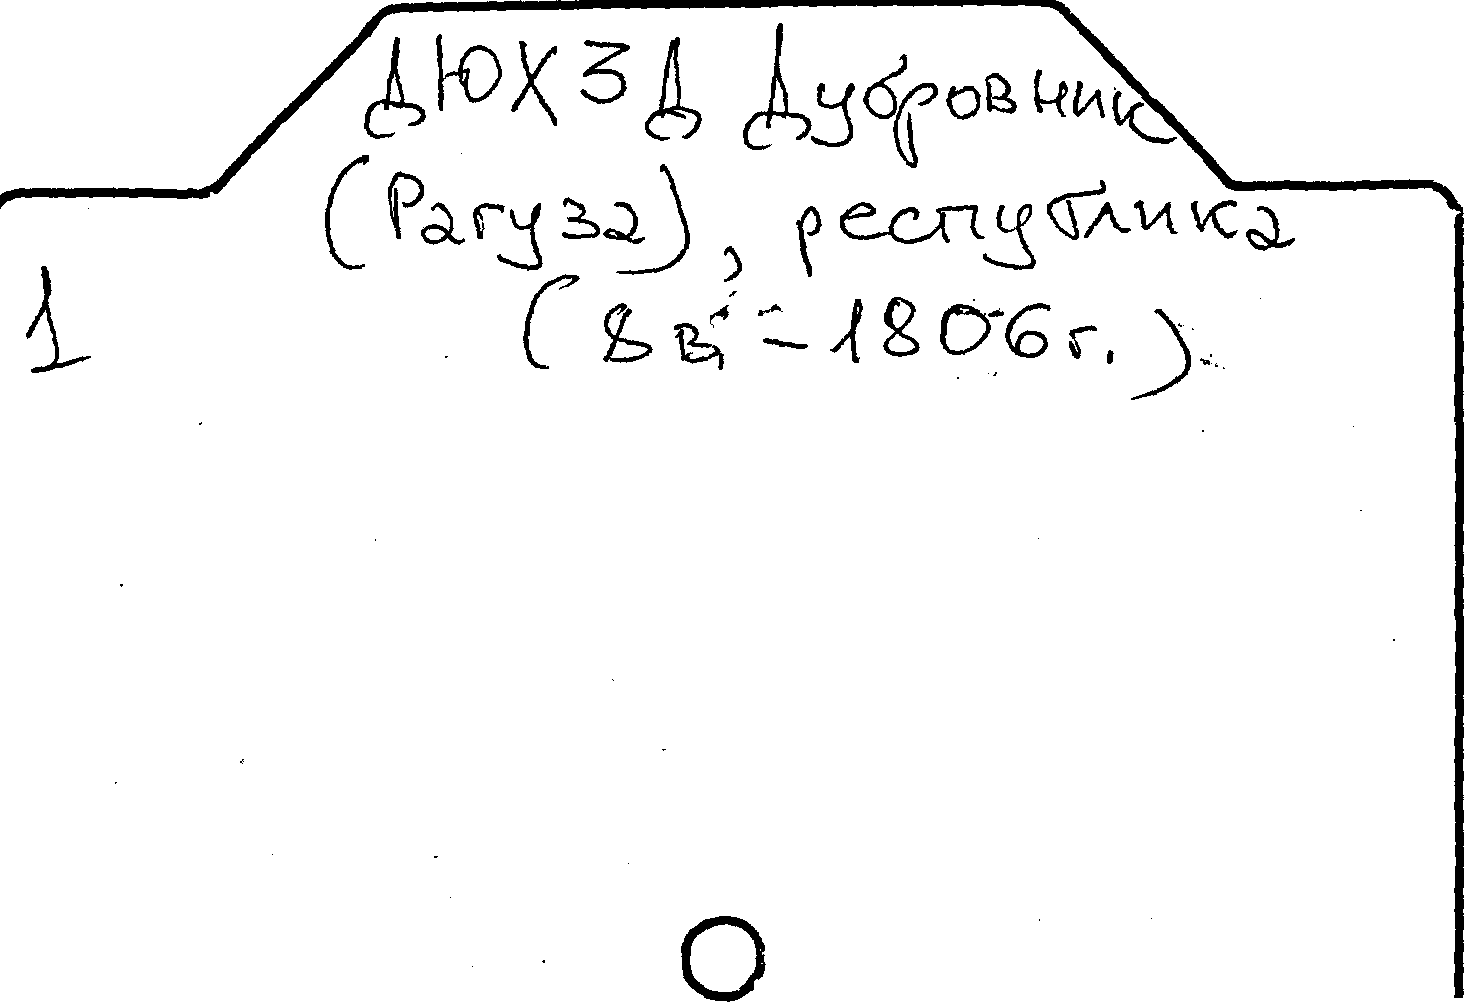 ДЮХЗД Дубровник
(Рагуза), республика
1 (8 в. – 1806 г.)